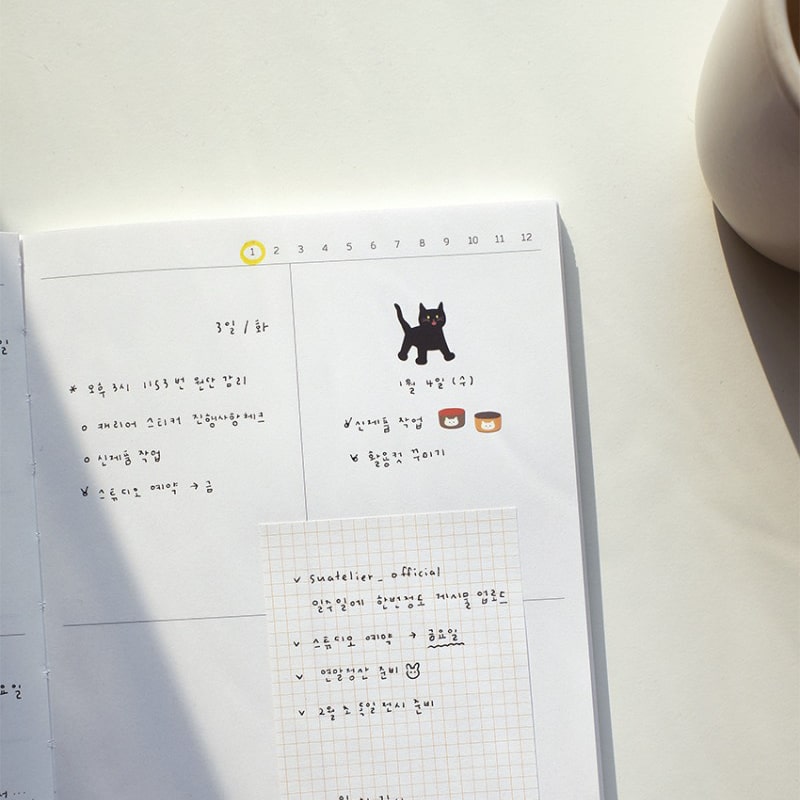 1 2 3 4 5 6 7 8 9 10 11 12
3일 / 화
* 오후 3시 1153번 원단 감리
o 캐리어 스티커 진행사항체크
o 신제품 작업
v 스튜디오 예약 → 금
1월 4일 (수)
v 신제품 작업
v 활용컷 꾸미기
v suatelier_official
일주일에 한번정도 게시물 업로드
v 스튜디오 예약 → 금요일
v 연말정산 준비
v 2월 초 독일 전시 준비
일
요일